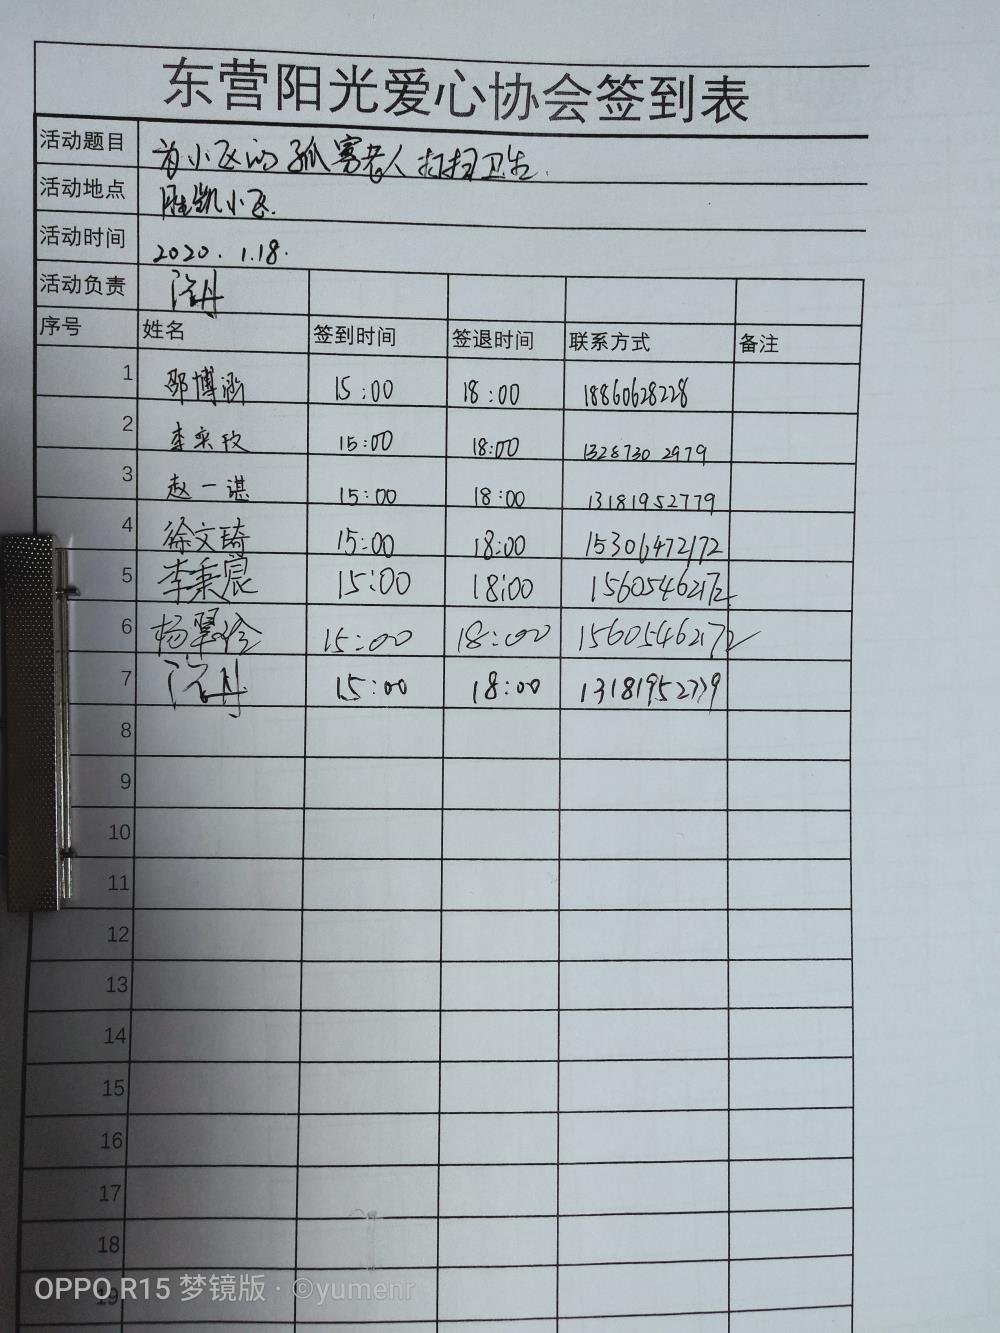 东营阳光爱心协会签到表
活动题目 为小区的孤寡老人打扫卫生.
活动地点 胜凯小区.
活动时间 2020.1.18.
活动负责
序号 姓名 签到时间 签退时间 联系方式 备注
1 邵博涵 15:00 18:00 18860628228
2 李奕玫 15:00 18:00 13287302979
3 赵一谌 15:00 18:00 13181952779
4 徐文琦 15:00 18:00 15306472172
5 李秉宸 15:00 18:00 15605462172
6 杨翠玲 15:00 18:00 15605462172
7 15:00 18:00 13181952779
8
9
10
11
12
13
14
15
16
17
18
19
OPPO R15 梦镜版 · ©yumenr